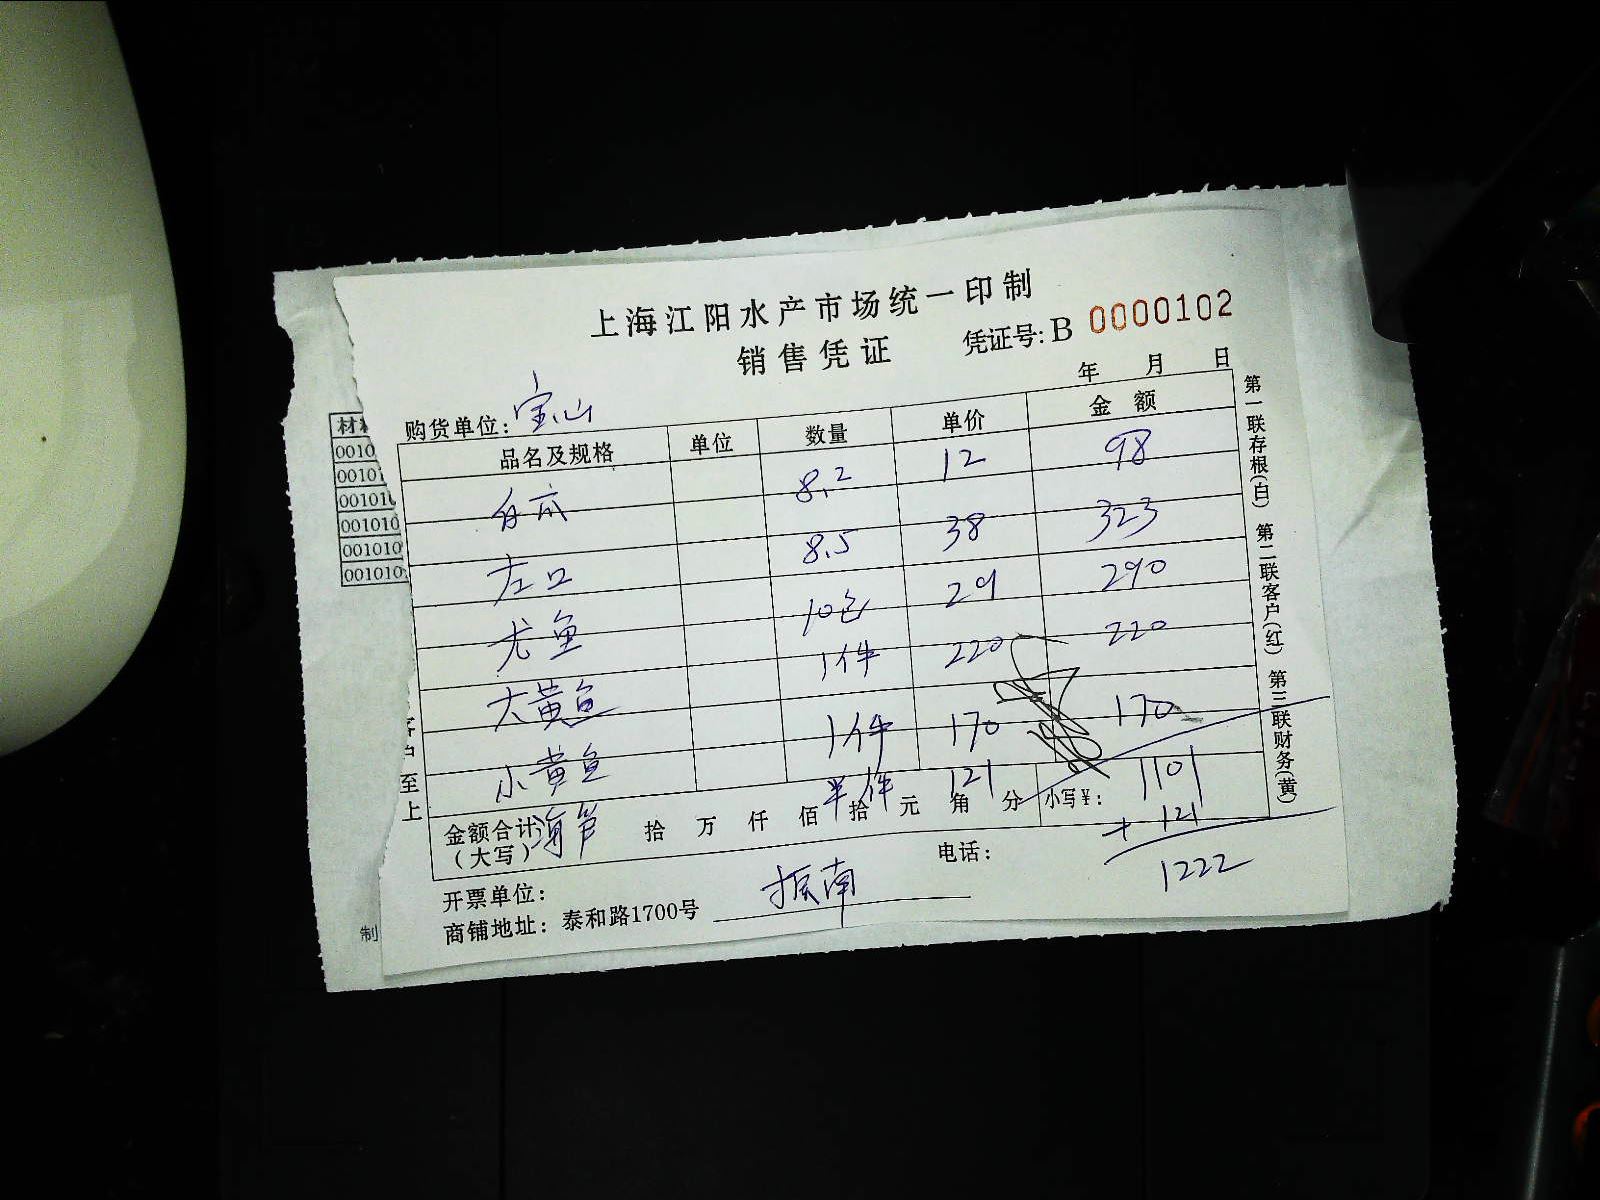 上海江阳水产市场统一印制
销售凭证 凭证号: B 0000102
年 月 日
购货单位: 宝山
品名及规格 单位 数量 单价 金额
8.2 12 98
左口 8.5 38 323
尤鱼 10包 29 290
大黄鱼 1件 220 220
小黄鱼 1件 170 170
海笋 半件 121
金额合计 拾 万 仟 佰 拾 元 角 分 小写¥: 1101
(大写)
+ 121
1222
开票单位: 电话:
商铺地址: 泰和路1700号 振南
第一联存根(白) 第二联客户(红) 第三联财务(黄)
客户至上
材料
0010
00101
001010
001010
001010
001010
制